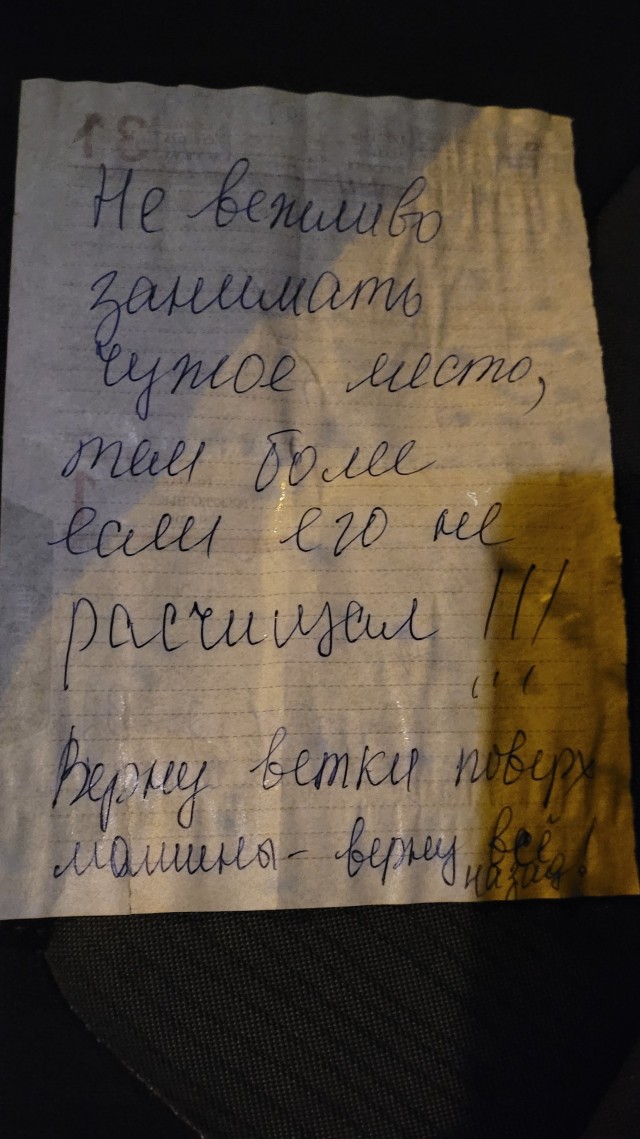 31
Не вежливо
занимать
чужое место,
тем более
если его не
расчищал !!!
Верну ветки поверх
машины – верну всё
назад!